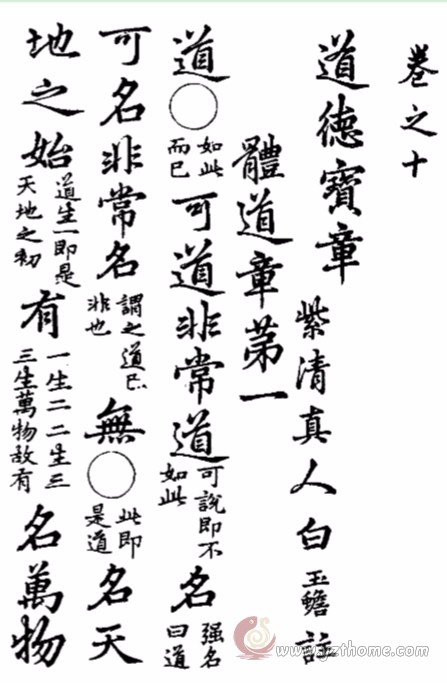 卷之十
道德寶章 紫清真人白玉蟾註
體道章苐一
道○如此而已可道非常道可說即不如此名强名曰道
可名非常名謂之道已非也無○此即是道名天
地之始道生一即是天地之初有一生二二生三三生萬物故有名萬物